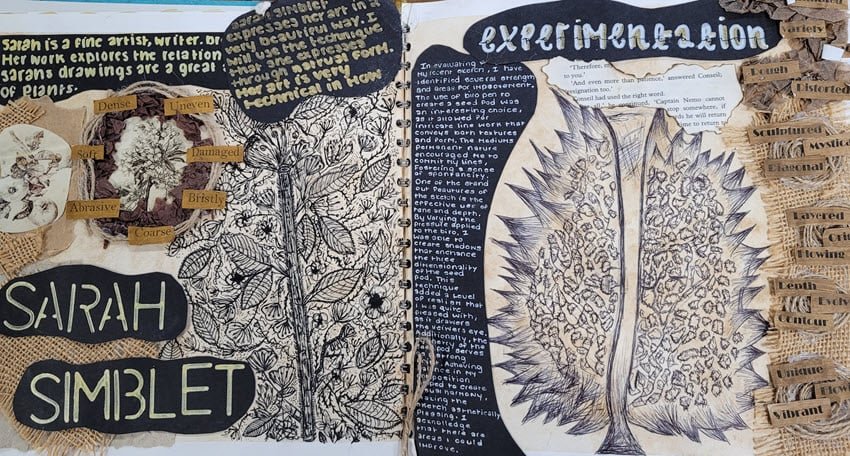 Sarah is a fine artist, writer, br
Her work explores the relation
sarahs drawings are a great
of plants.
Sarah simblet
expresses her art in
very beautiful way. I
will use the technique
she expresses
through animal form.
Her art is very
technical in how
Dense
Uneven
Soft
Damaged
Bristly
Abrasive
Coarse
SARAH
SIMBLET
experimentation
In evaluating
my recent sketch, I have
identified several strengths
and areas for improvement.
The use of biro pen to
create a seed pod was
an interesting choice,
as it allowed for
intricate line work that
conveys both textures
and form. The mediums
permanent nature
encouraged me to
commit my lines,
fostering a sense
of spontaneity.
One of the stand
out features of
the sketch is the
effective use of
tone and depth.
By varying the
pressure applied
to the biro, I
was able to
create shadows
that enchance
the three
dimensionality
of the seed
pod. This
technique
added a level
of realism that
I was quite
pleased with,
as it draws
the viewers eye.
Additionally, the
pod serves
strong
Achieving
in my
to create
harmony,
the
sketch aesthetically
pleasing. I
acknowledge
that there are
areas I could
improve.
"Therefore, m
to you.'
'And even more than patience,' answered Conseil;
resignation too.'
Conseil had used the right word.
'Captain Nemo cannot
stop somewhere, if
he will return
to return to
Variety
Rough
Distorted
Sculptured
Mystic
Diagonal
Layered
Flowing
Depth
Contour
Unique
Vibrant